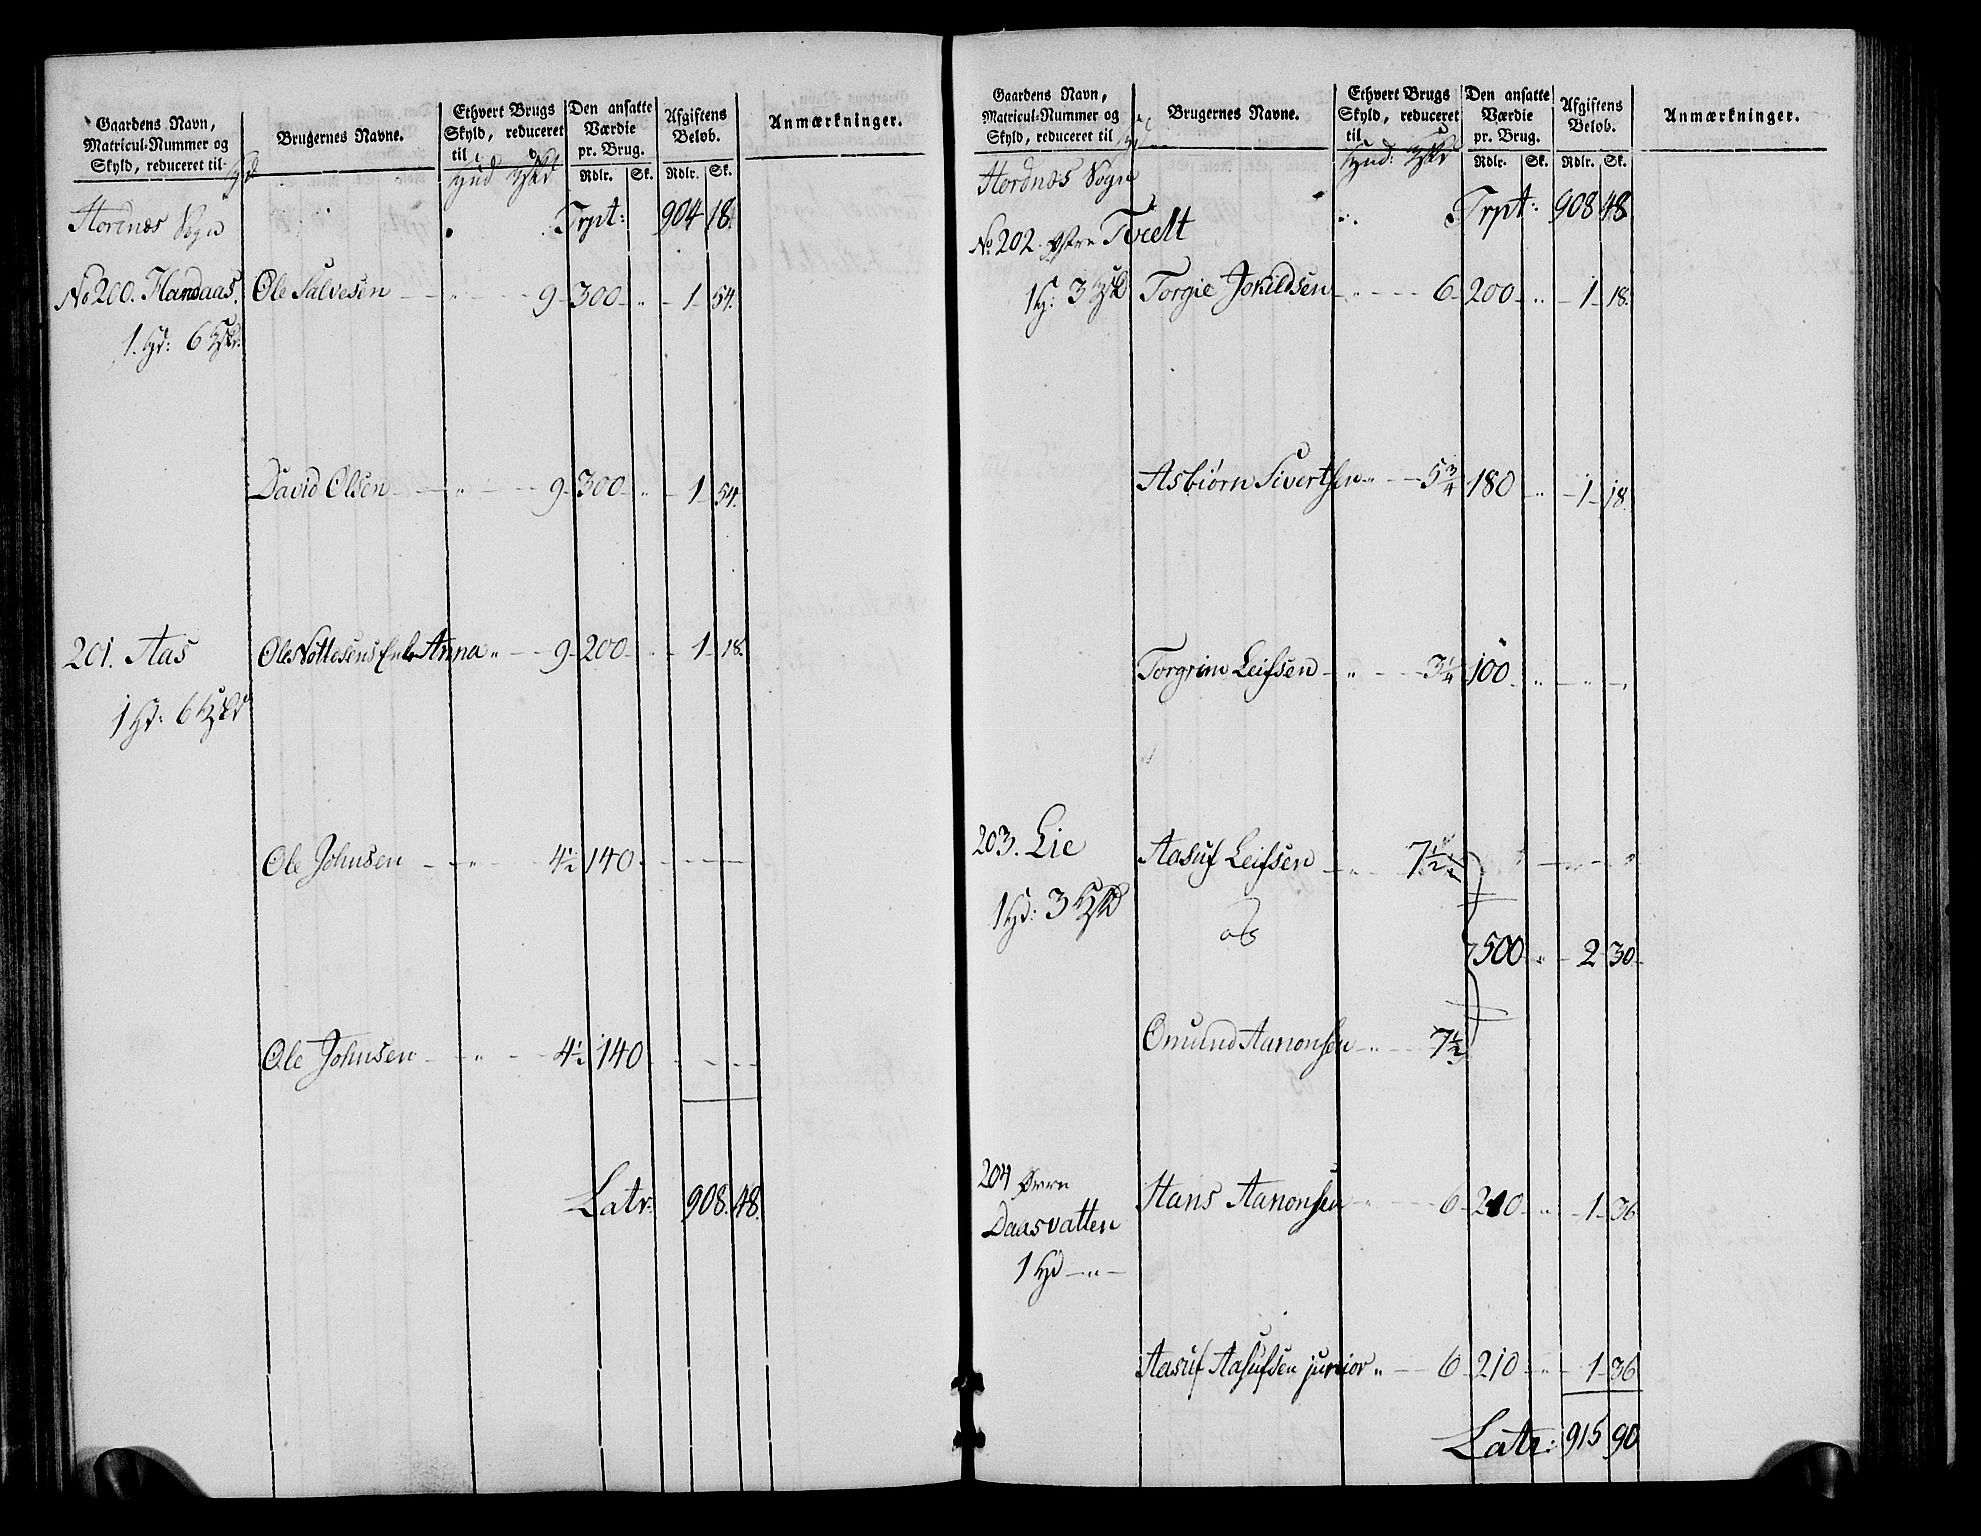 Gaardens Navn,
Matricul-Nummer og
Skyld, reduceret til
Brugernes Navne.
Ethvert Brugs
Skyld, reduceret
til
Den ansatte
Værdie
pr. Brug.
Rdlr. Sk.
Afgiftens
Beløb.
Rdlr. Sk.
Anmærkninger.
Hordnæs Sogn
Trpt: 904 18.
No 200. Handaas. Ole Salvesen — " — 9 - 300 - " - 1 - 54.
1. Hd: 6
David Olsen — " — 9 - 300 - " - 1 - 54.
201. Aas Ole Nottosens Enke Anna " — 9 - 200 - " - 1 - 18.
1 Hd: 6
Ole Johnsen — " — 4½ 140
Ole Johnsen — " — 4½ 140
Latr: 908. 48.
Gaardens Navn,
Matricul-Nummer og
Skyld, reduceret til
Brugernes Navne.
Ethvert Brugs
Skyld, reduceret
til
Den ansatte
Værdie
pr. Brug.
Rdlr. Sk.
Afgiftens
Beløb.
Rdlr. Sk.
Anmærkninger.
Hordnæs Sogn
Trpt: 908 48
No 202. Østre Tvedt
1 Hd: 3 Torgie Jokildsen — " — 6 - 200 - " - 1 - 18.
Asbiørn Sivertsen " — 5¾ 180 - " - 1 - 18.
Torgrim Leifsen — " — 3¼ 100 - " - "
203. Lie Aasuf Leifsen — " — 7½
1 Hd: 3
og
500 - " - 2 30
Omund Aanonsen — " — 7½
204 Øvre
Daasvatten
Hans Aanonsen — " — 6 - 210 - " - 1 - 36
1 Hd — " —
Aasuf Aasufsen junior " — 6 - 210 - " - 1 - 36
Latr: 915 90